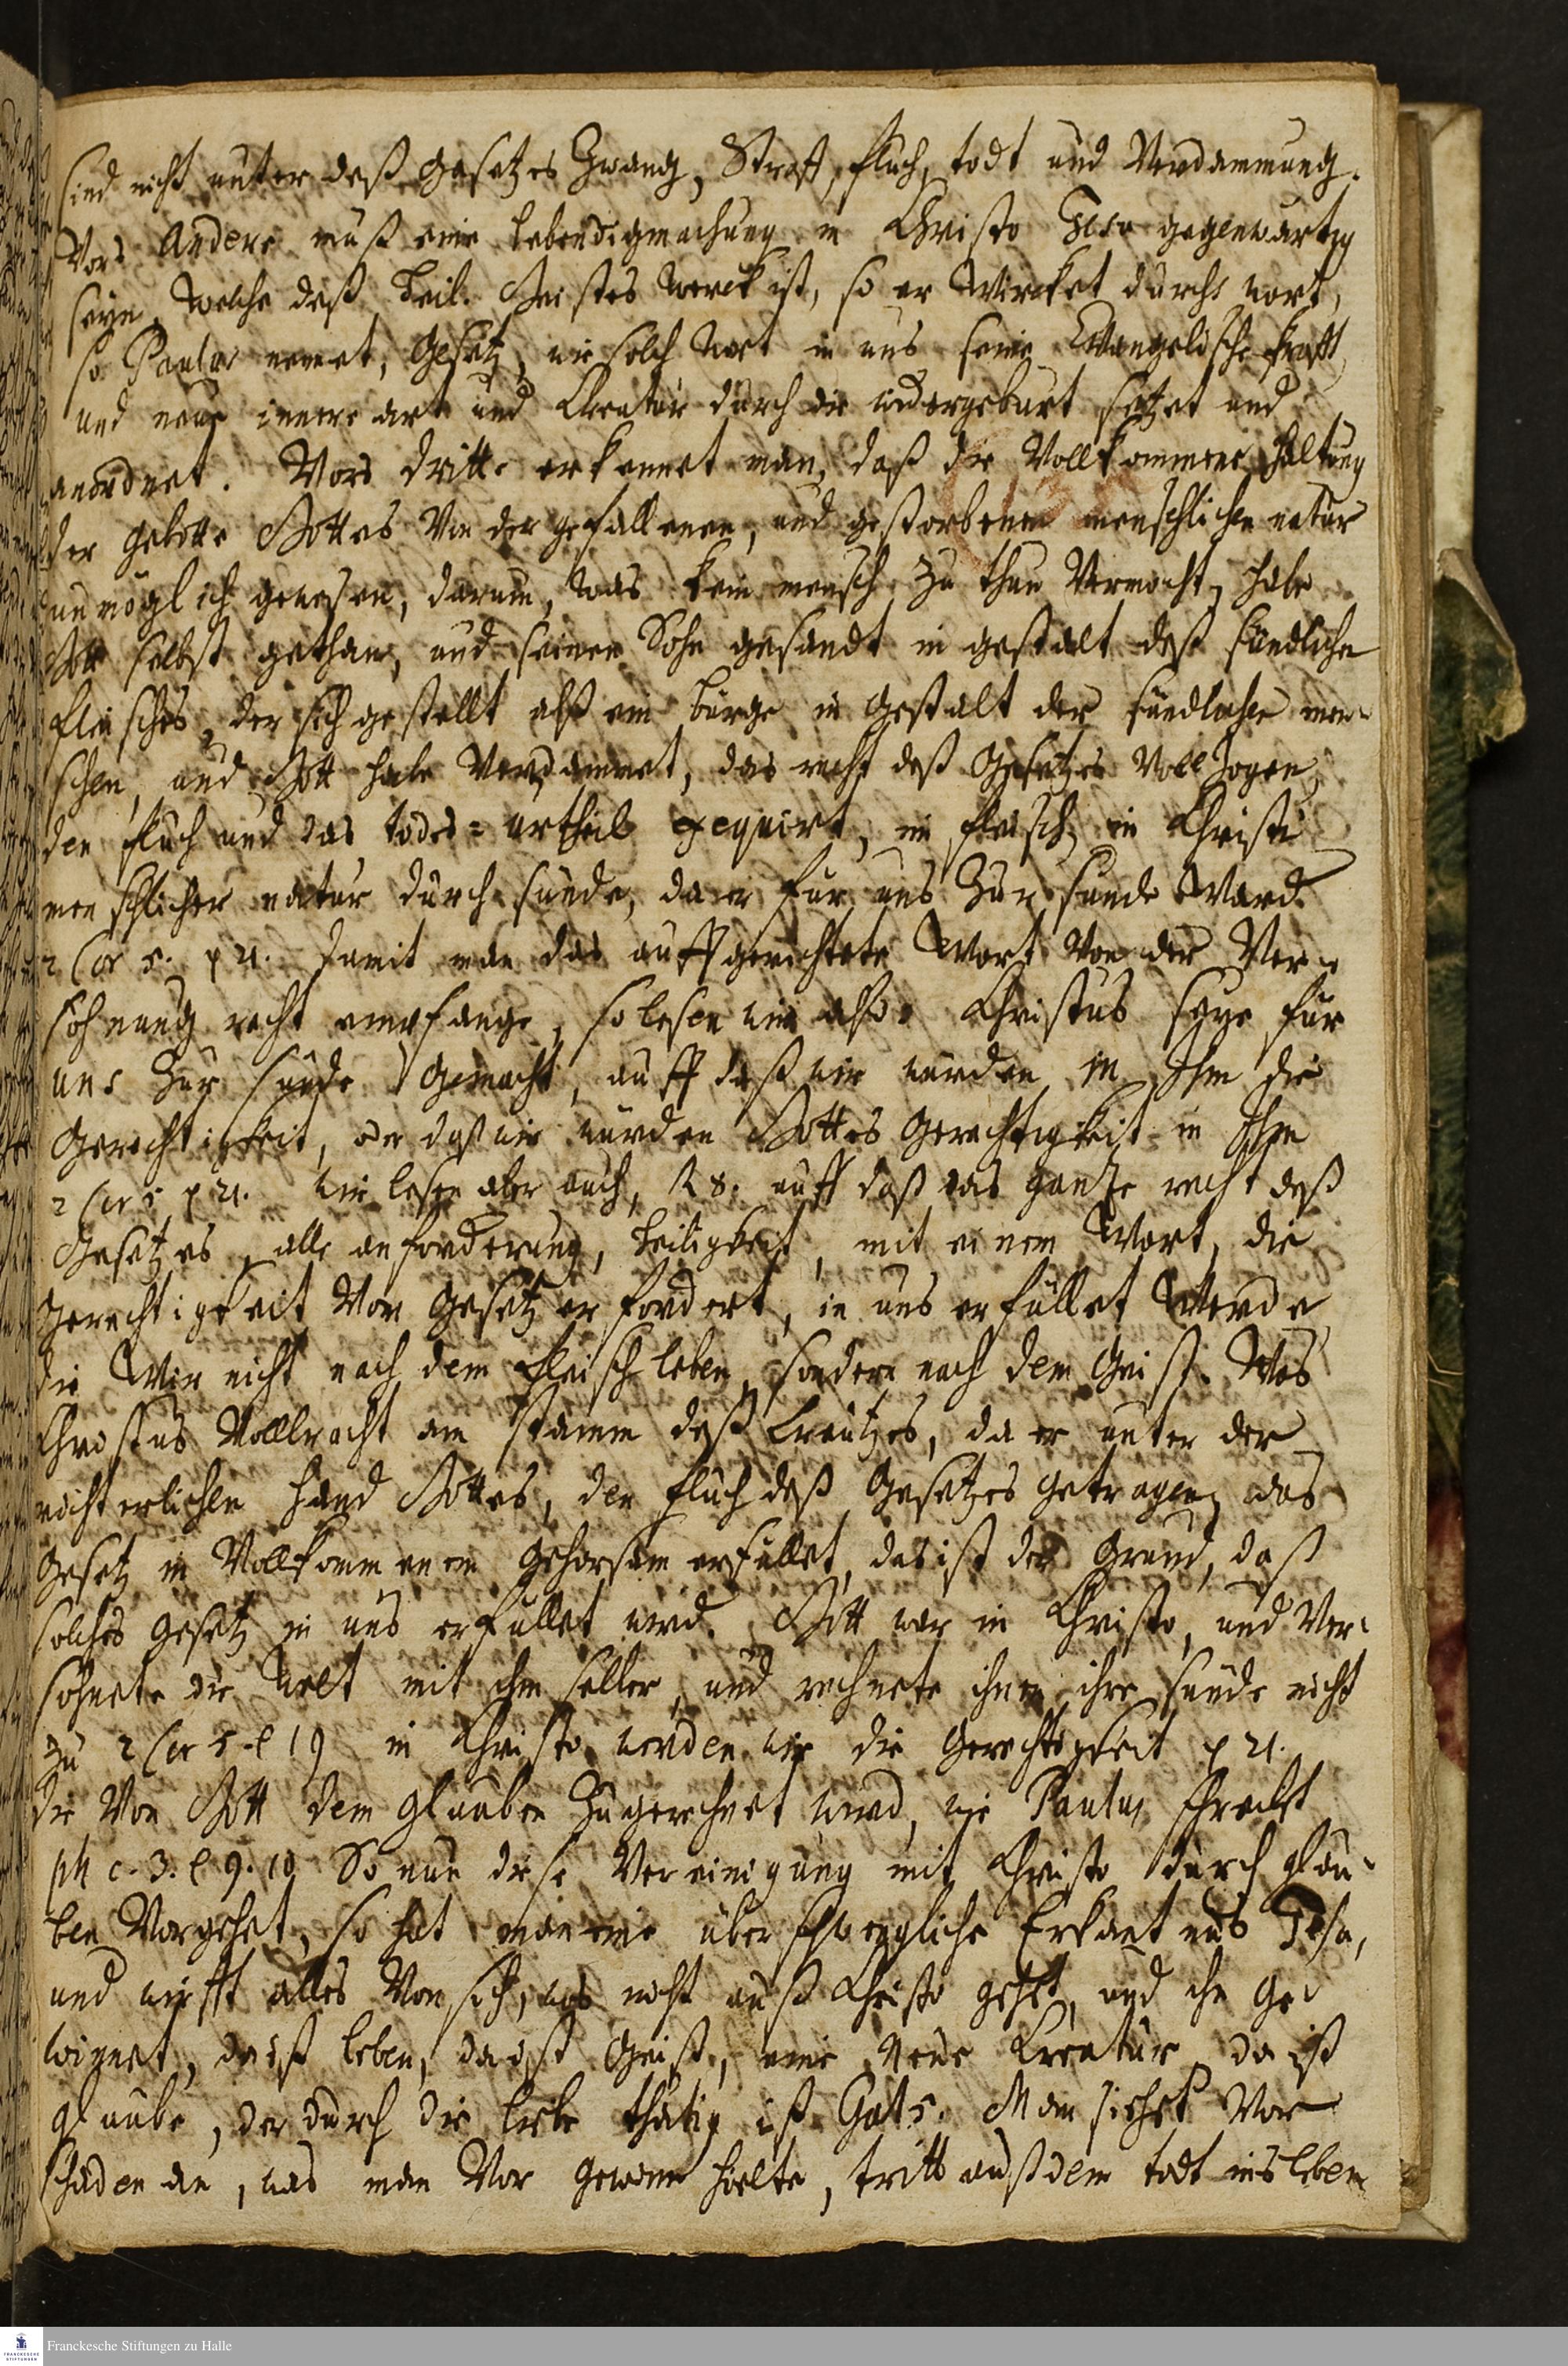 sind nicht unter deß Gesetzes Zwang, Straff, fluch, todt und Verdammung.
Vors Andere muß eine lebendigmachung in Christo Jesu gegenwärtig
seyn, welche deß heil. Geistes werck ist, so er Wircket durchs wort,
so Paulus nennet, Gesetz, wie solch wort in uns seine Evangelische krafft
und neue innere art und Creatur durch die widergeburt setzet und
anordnet. Vors dritte erkennet man, daß die Vollkommene haltung
der gebotte Gottes Von der gefallenen, und gestorbenen menschlichen natur
unmöglich gewesen, darum, was kein mensch zu thun Vermocht, habe
Gott selbst gethan, und seinen Sohn gesandt in gestalt deß sündlichen
fleisches, der sich gestellt alß ein bürge in gestalt der sündlichen men-
schen, und Gott habe Verdammet, das recht deß Gesetzes Vollzogen,
den fluch und das todes-urtheil exequirt, im fleisch, in Christi
menschlicher natur durch sünde, da er für uns Zur sünde Ward.
2 Cor 5. v 21. damit man das auffgerichtete Wort Von der Ver-
söhnung recht empfange, so lesen wir alß: Christus seye für
uns Zur sünde gemacht, auff daß wir würden in Ihm die
Gerechtigkeit, oder daß wir würden Gottes Gerechtigkeit in Ihm
2 Cor 5 v 21. wir lesen aber auch, R 8. auff daß das gantze recht deß
Gesetzes, alle anforderung, heiligkeit, mit einem Wort, die
Gerechtigkeit Vom Gesetz erfordert, in uns erfüllet Werde,
die Wir nicht nach dem fleisch leben, sondern nach dem Geist. Was
Christus Vollbracht am stamm deß Creutzes, da er unter der
richterlichen hand Gottes, den fluch deß Gesetzes getragen, das
Gesetz in Vollkommenem gehorsam erfüllet, das ist der Grund, daß
solches Gesetz in uns erfüllet wird. Gott war in Christo, und Ver-
söhnete die Welt mit ihm selber, und rechnete ihnen ihre sünde nicht
zu 2 Cor 5 v 19 in Christo werden wir die Gerechtigkeit v 21.
die Von Gott dem Glauben Zugerechnet wird, wie Paulus schreibt
ph c. 3. v 9. 10 So nun diese Vereinigung mit Christo durch glau-
ben Vorgehet, so hat man eine überschwengliche Erkantnus Jesu,
und wirfft alles Von sich, was nicht auß Christo gehet, und ihn ge-
winnet, da ist leben, da ist Geist, eine neue Creatur, da ist
glaube, der durch die liebe thätig ist Gal 5. Man siehet Vor
schaden an, was man Vor gewinn hielte, tritt auß dem todt ins leben
Franckesche Stiftungen zu Halle